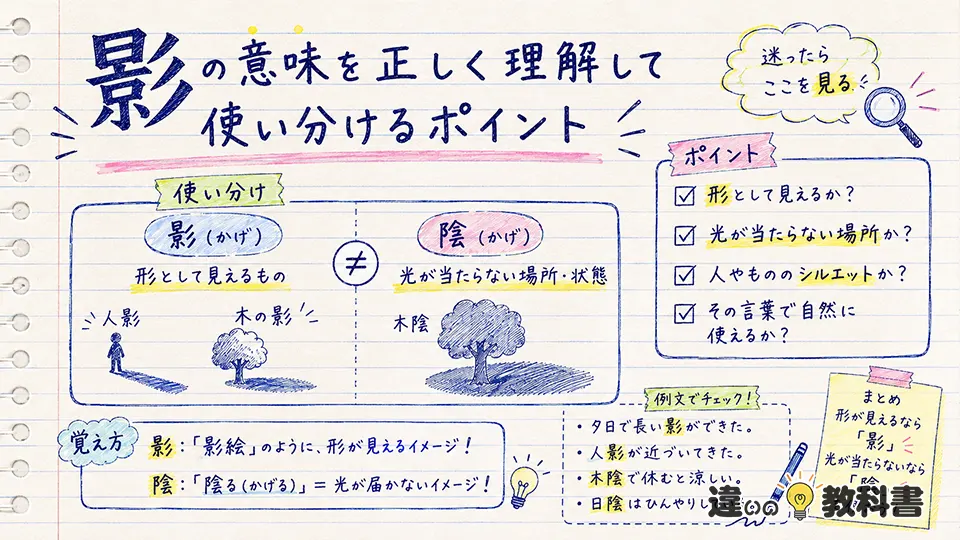 影の意味を正しく理解して
使い分けるポイント
迷ったら
ここを見る
使い分け
影（かげ）
形として見えるもの
人影
木の影
≠
陰（かげ）
光が当たらない場所・状態
木陰
ポイント
形として見えるか？
光が当たらない場所か？
人やもののシルエットか？
その言葉で自然に
使えるか？
覚え方
影：「影絵」のように、形が見えるイメージ！
陰：「陰る（かげる）」＝光が届かないイメージ！
例文でチェック！
・夕日で長い影ができた。
・人影が近づいてきた。
・木陰で休むと涼しい。
・日陰はひんやりし
まとめ
形が見えるなら
「影」
光が当たらないなら
「陰
違いの教科書